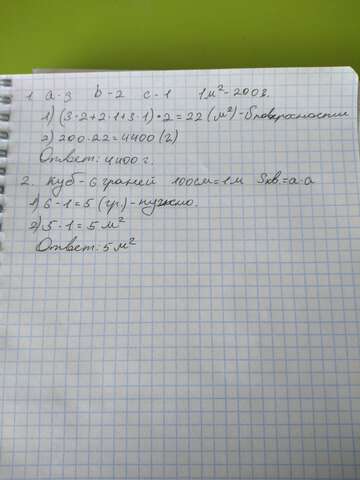 1. a-3 b-2 c-1 1м²-200г.
1) (3·2+2·1+3·1)·2=22 (м²)-Sповерхности
2) 200·22=4400 (г)
Ответ: 4400 г.
2. Куб-6 граней 100см=1м Sкв.=a·a
1) 6-1=5 (гр.)-нужно.
2) 5·1=5 м²
Ответ: 5 м²